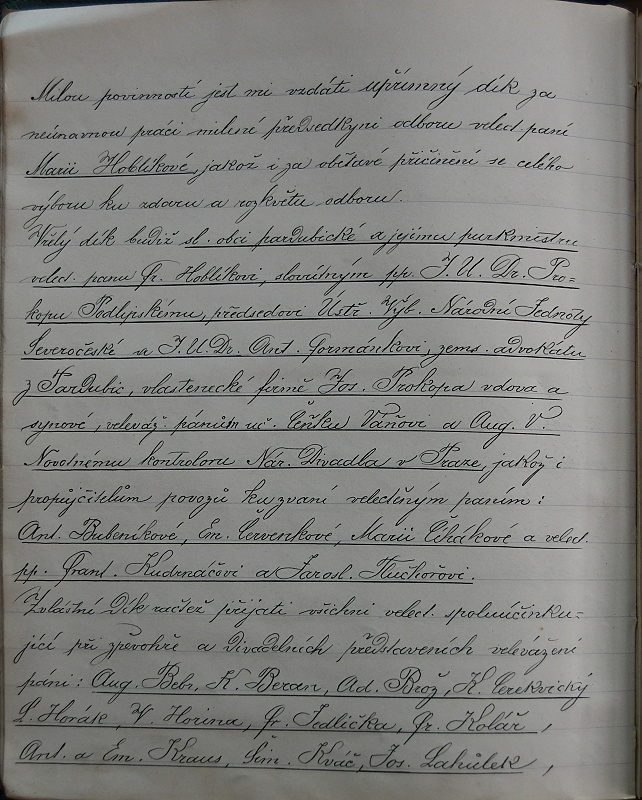 Milou povinností jest mi vzdáti upřímný dík za
neúnavnou práci milené předsedkyni odboru velect. paní
Marii Hoblíkové, jakož i za obětavé přičinění se celého
výboru ku zdaru a rozkvětu odboru.
Vřelý dík budiž sl. obci pardubické a jejímu purkmistru
velect. panu Fr. Hoblíkovi, slovutným pp. J. U. Dr. Pro=
kopu Podlipskému, předsedovi Ústř. Výb. Národní Jednoty
Severočeské a J. U. Dr. Ant. Formánkovi, zems. advokátu
z Pardubic, vlastenecké firmě Jos. Prokopa vdova a
synové, veleváž. pánům uč. Čeňku Váňovi a Aug. V.
Novotnému kontroloru Nár. Divadla v Praze, jakož i
propůjčitelům povozů ku zvaní velectěným paním:
Ant. Bubeníkové, Em. Červenkové, Marii Čihákové a velect.
pp. Frant. Kudrnáčovi a Jarosl. Tuchořovi.
Zvláštní dík račtež přijati všichni velect. spoluúčinku=
jící při zpěvohře a divadelních představeních velevážení
páni: Aug. Bebr, K. Beran, Ad. Brož, K. Cerekvický
L. Horáse, V. Horina, Fr. Jedlička, Fr. Kolář,
Ant. a Em. Kraus, Šim. Kváč, Jos. Lahůlek,